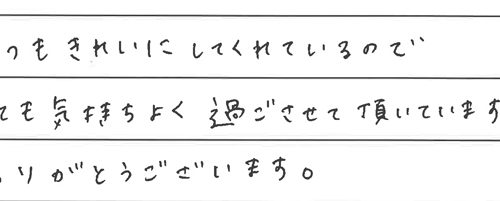 つもきれいにしてくれているので
ても気持ちよく過ごさせて頂いています
りがとうございます。